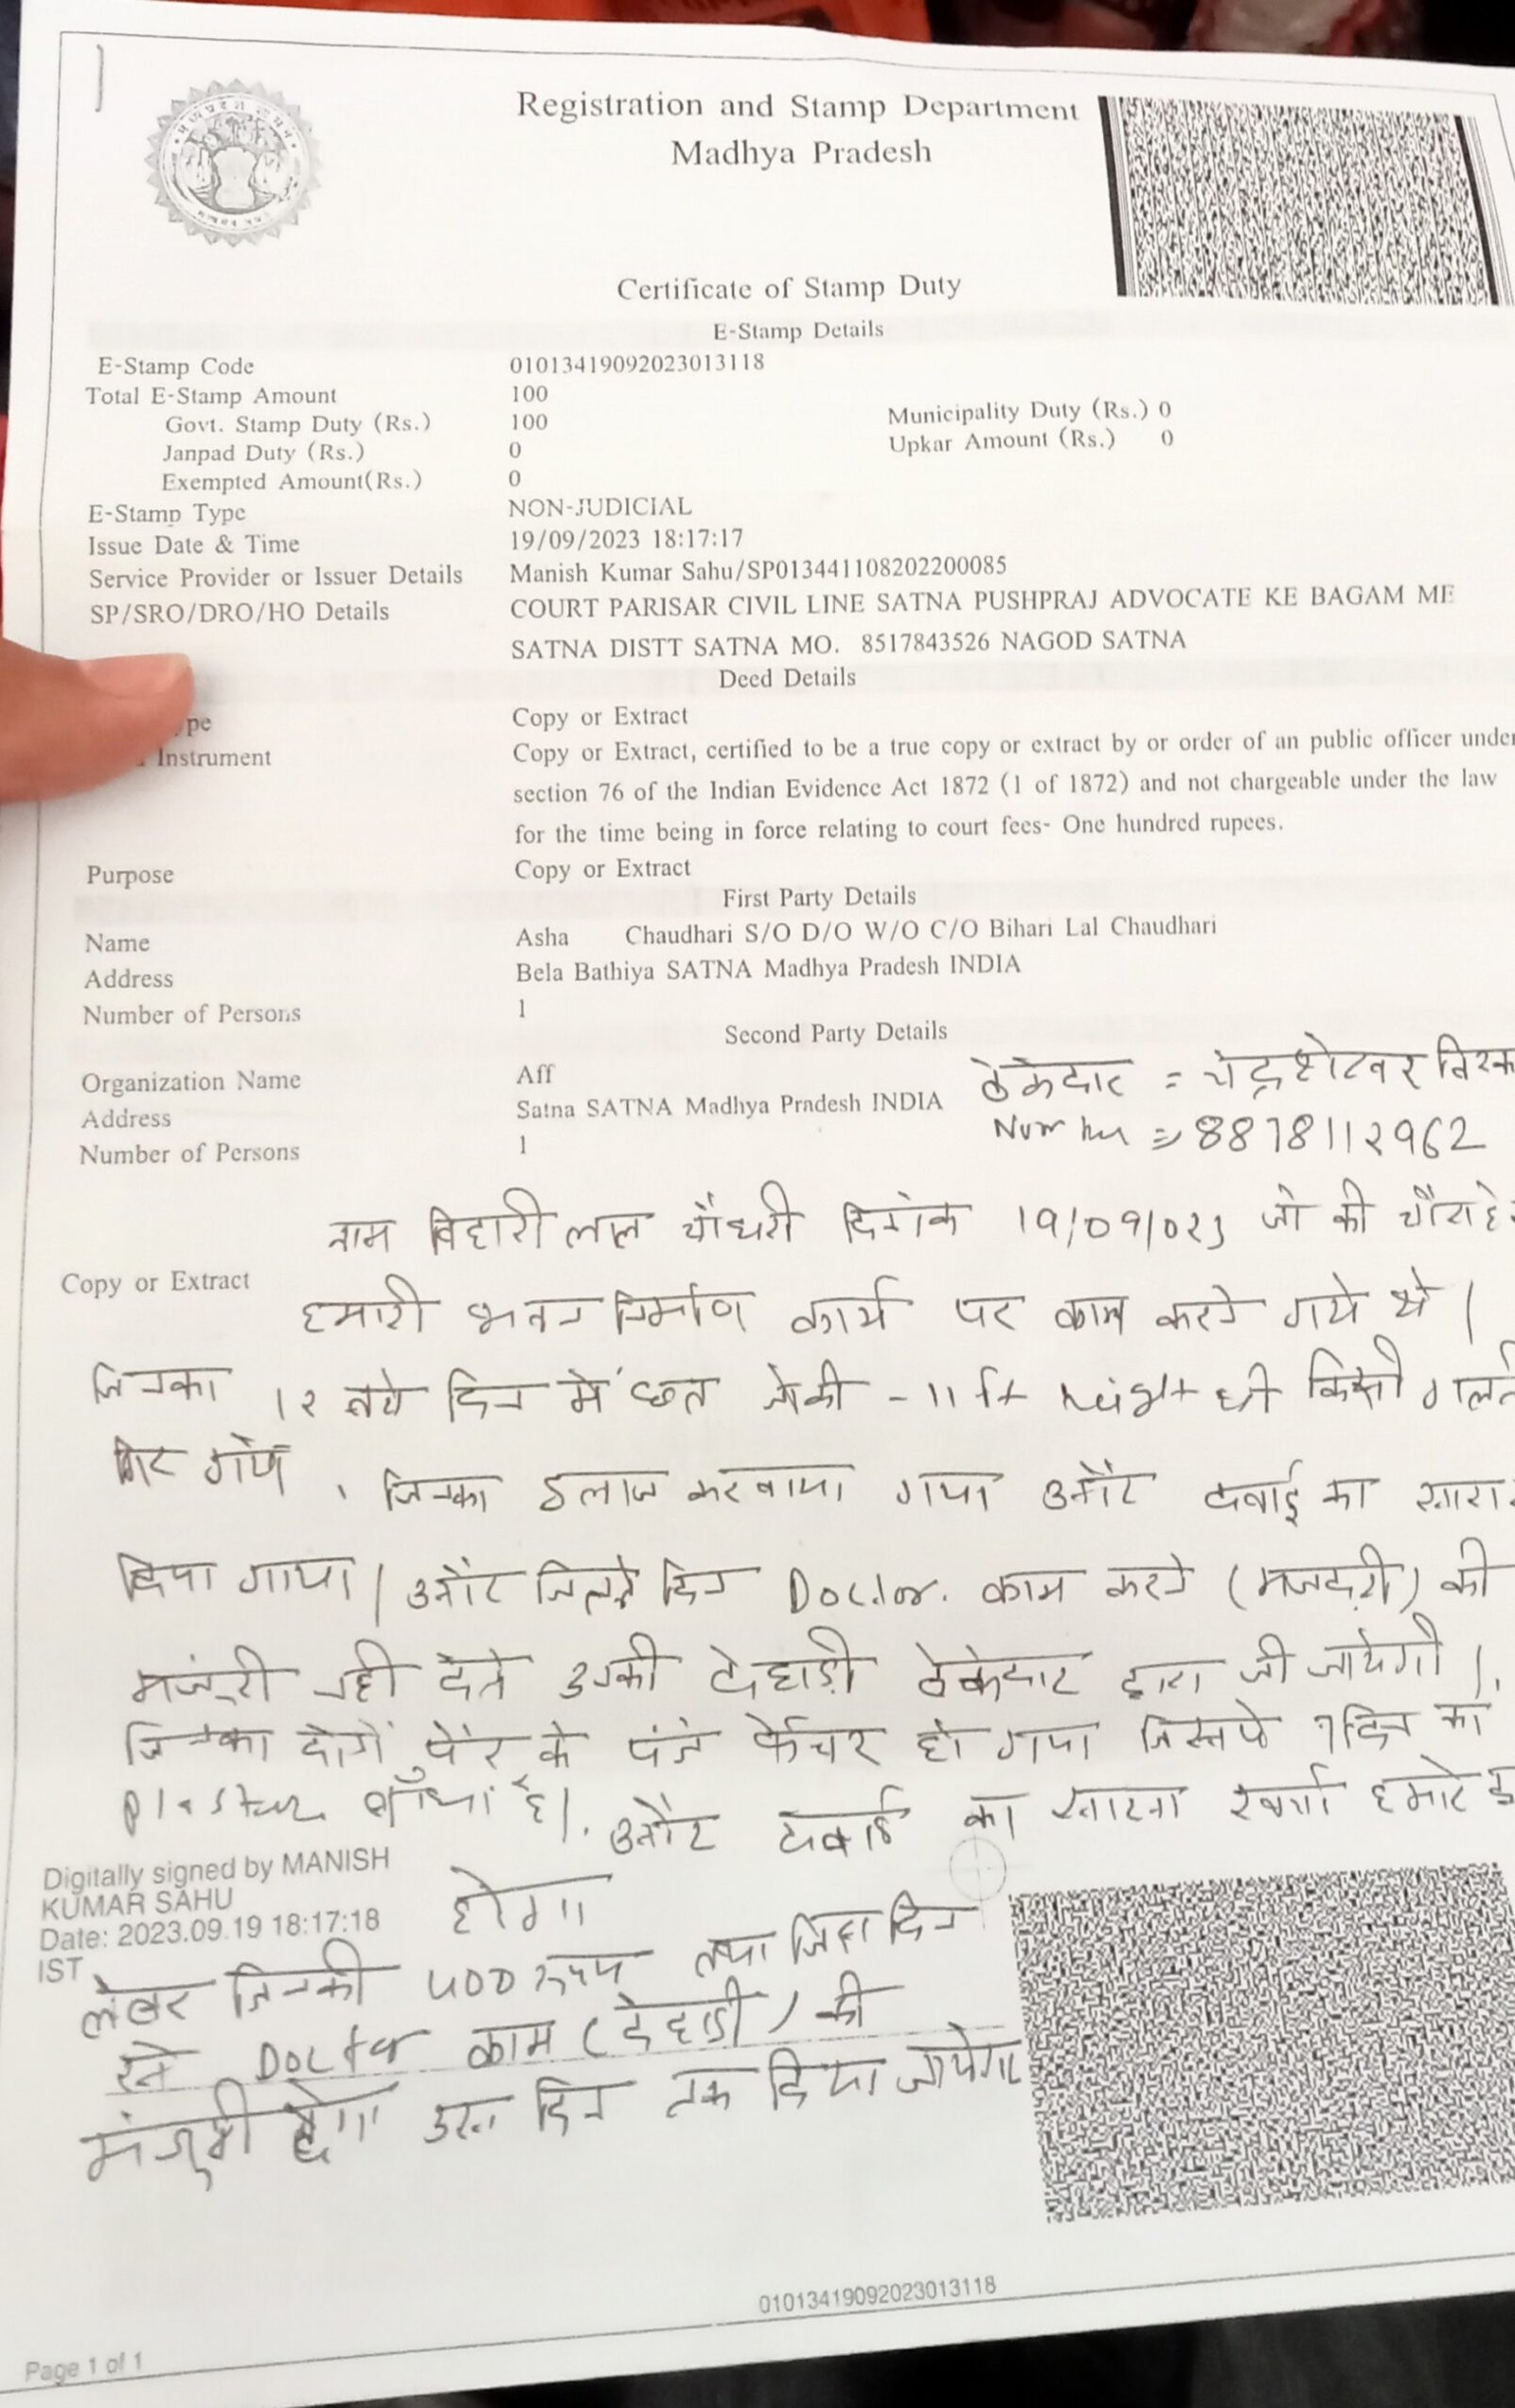 Registration and Stamp Department
Madhya Pradesh
Certificate of Stamp Duty
E-Stamp Details
E-Stamp Code 01013419092023013118
Total E-Stamp Amount 100
Govt. Stamp Duty (Rs.) 100 Municipality Duty (Rs.) 0
Janpad Duty (Rs.) 0 Upkar Amount (Rs.) 0
Exempted Amount(Rs.) 0
E-Stamp Type NON-JUDICIAL
Issue Date & Time 19/09/2023 18:17:17
Service Provider or Issuer Details Manish Kumar Sahu/SP013441108202200085
SP/SRO/DRO/HO Details COURT PARISAR CIVIL LINE SATNA PUSHPRAJ ADVOCATE KE BAGAM ME
SATNA DISTT SATNA MO. 8517843526 NAGOD SATNA
Deed Details
Copy or Extract
Instrument Copy or Extract, certified to be a true copy or extract by or order of an public officer under
section 76 of the Indian Evidence Act 1872 (1 of 1872) and not chargeable under the law
for the time being in force relating to court fees- One hundred rupees.
Purpose Copy or Extract
First Party Details
Name Asha Chaudhari S/O D/O W/O C/O Bihari Lal Chaudhari
Address Bela Bathiya SATNA Madhya Pradesh INDIA
Number of Persons 1
Second Party Details
Organization Name Aff
Address Satna SATNA Madhya Pradesh INDIA
Number of Persons 1
ठेकेदार =
8878112962
नाम बिहारी लाल चौधरी दिनांक 19/09/023 जो की
Copy or Extract
हमारी भवन निर्माण कार्य पर काम करने गये थे।
जिनका 12 दिन में छत जोकी - 11 ft height थी किसी
गिर गये, जिनका इलाज करवाया गया और दवाई का सारा
दिया गाया। और जितने दिन Doctor. काम करने (मजदूरी) की
मंजूरी नही देते उनकी देहाड़ी ठेकेदार द्वारा दी जायेगी।
जिनका दोनों पैर के पंजे फ्रेक्चर हो गया जिसपे दिन का
plaster बाँधा है।. और दवाई का सारा खर्चा हमारे
होगा
Digitally signed by MANISH
KUMAR SAHU
Date: 2023.09.19 18:17:18
IST
लेबर जिनकी 400 रुपय तथा दिन
Doctor काम (देहाड़ी) की
मंजूरी देगा उस दिन तक दिया जायेगा
01013419092023013118
Page 1 of 1